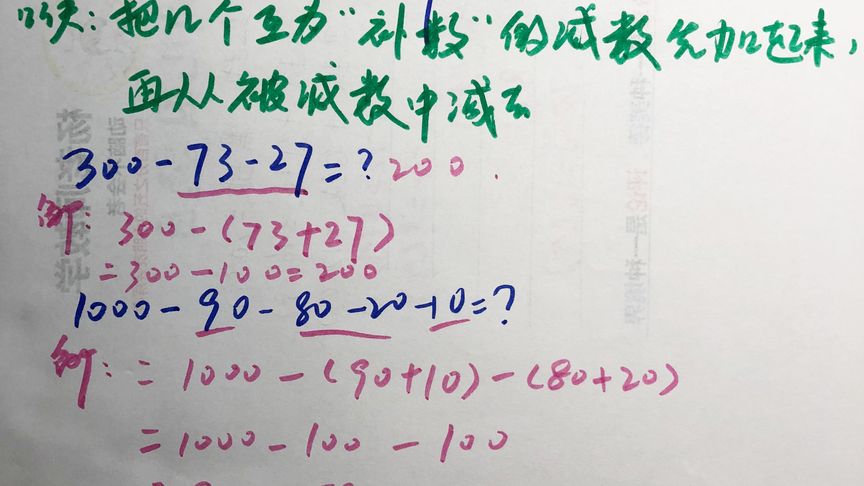 口诀:把几个互为"补数"的减数先加起来,
再从被减数中减去
300-73-27=?200.
例:300-(73+27)
=300-100=200
1000-90-80-20-10=?
例:=1000-(90+10)-(80+20)
=1000-100-100